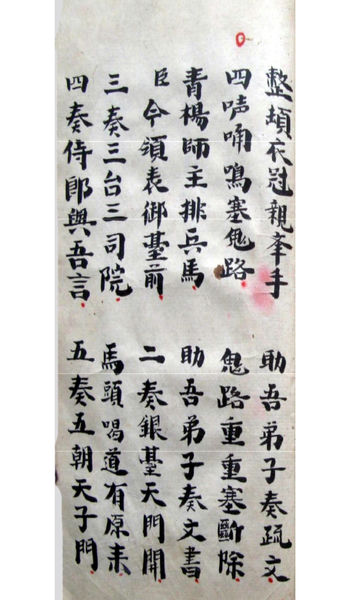 整頓衣冠親奉手 助吾弟子奏疏文
四声鳴塞鬼路 鬼路重重塞斷除
青楊師主排兵馬 助吾弟子奏文書
臣今領表御臺前 二奏銀臺天門開
三奏三台三司院 馬頭喝道有原来
四奏侍郎與吾言 五奏五朝天子門